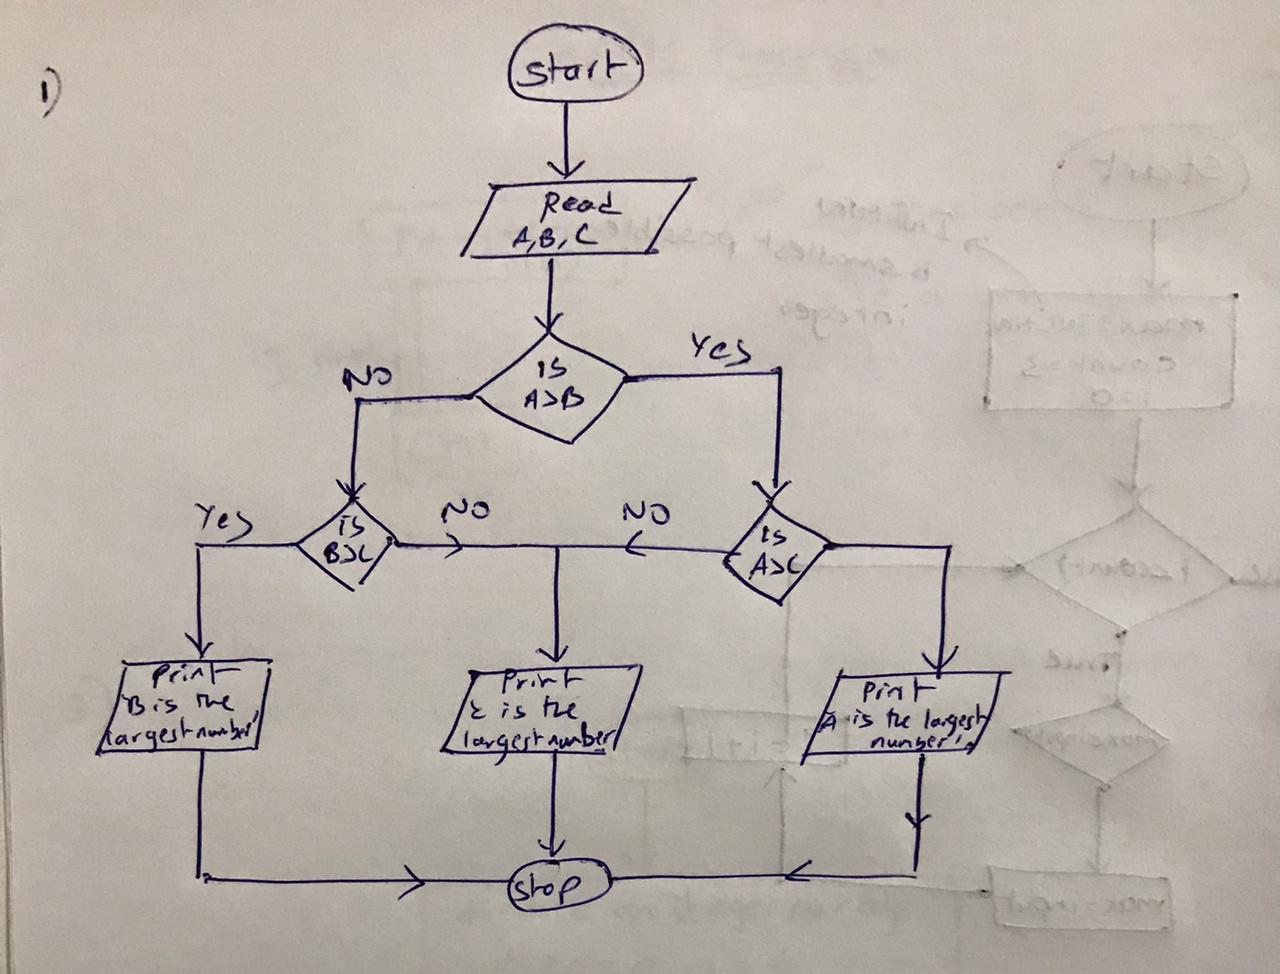 1)
Start
Read
A,B, C
is
A>B
NO
Yes
is
B>C
Yes
NO
NO
is
A>C
Print
'B is the
largest number'
Print
C is the
largest number
Print
'A is the largest
number'
Stop